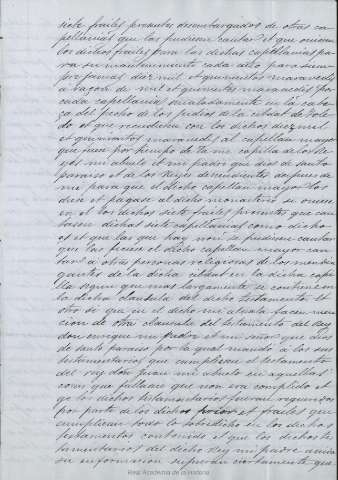 siete frailes prestes desembargados de otras ca-
pellanias que las pudiesen cantar et que oviesen
los dichos frailes para las dichas capellanias pa-
ra su mantenimiento cada año para siem-
pre jamas diez mil et quinientos maravedis
a razon de mil et quinientos maravedis por
cada capellania situadamente en la cabe-
za del pecho de los judios de la cibdat de Tole-
do et que recudiesen con los dichos diez mil
et quinientos maravedis al capellan mayor
que fuese por tiempo de la su capilla de los Re-
yes mi abuelo et mi padre que dios de santo
paraiso et de los Reyes descendientes despues de
mi para que el dicho capellan mayor los
diese et pagase al dicho monasterio se oviese
en el los dichos siete frailes prestes que can-
tasen dichas siete capellanias como dicho
es et que las que hay non se pudiesen cantar
que las ficiese el dicho capellan mayor can-
tar a otras personas religiosas de los mendi-
gantes de la dicha cibdat en la dicha capi-
lla segun que mas largamente se contiene en
la dicha clausula del dicho testamento Et
otro si que en el dicho mi abuelo facen men-
cion de otra clausula del testamento del Rey
don enrique mi padre et mi señor que dios
de santo paraiso por la qual mando a los sus
testamentarios que cumpliesen el testamento
del rey don Juan mi abuelo en aquellas
cosas que fallasen que non era complido et
que los dichos testamentarios fueran requeridos
por parte de los dichos prior et frailes que
cumpliesen todo lo sobredicho en los dichos
testamentos contenido et que los dichos tes-
tamentarios del dicho Rey mi padre avida
su informacion supieran ciertamente que
Real Academia de la Historia